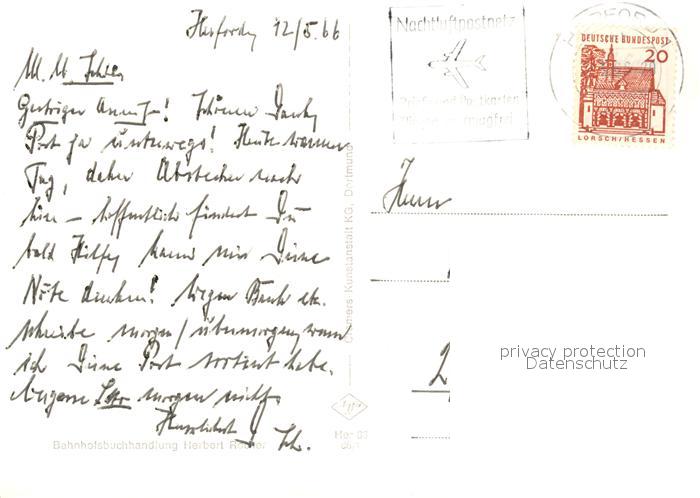 Herford, 12/5.66
Gestriger Anruf! Schönen Dank,
Post ja unterwegs! Heute warmer
Tag, daher Abstecher nach
hier - hoffentlich findest Du
bald Hilfe, kann mir Deine
Nöte denken! Wegen Bank etc.
schreibe morgen/übermorgen, wenn
ich Deine Post sortiert habe.
morgen nicht.
Herzlichst
Sch.
Bahnhofsbuchhandlung Herbert
Kunstanstalt KG, Dortmund
Nachtluftpostnetz
Briefe und Postkarten
DEUTSCHE BUNDESPOST
20
LORSCH/HESSEN
Herrn
2
privacy protection
Datenschutz